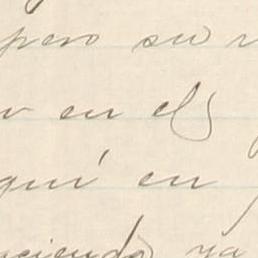 pero su
en el
aquí en
haciendo ya